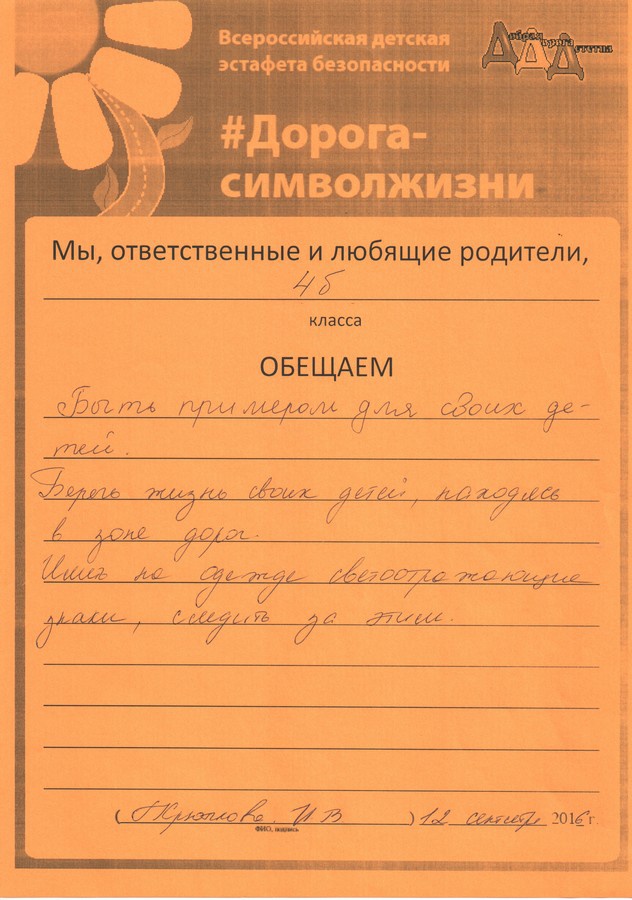 Всероссийская детская
эстафета безопасности
Добрая Дорога Детства
#Дорога-
символжизни
Мы, ответственные и любящие родители,
4б
класса
ОБЕЩАЕМ
Быть примером для своих де-
тей.
Беречь жизнь своих детей, находясь
в зоне дорог.
Иметь на одежде светоотражающие
знаки, следить за этим.
( И В ) 12 сентября 2016 г.
ФИО, подпись